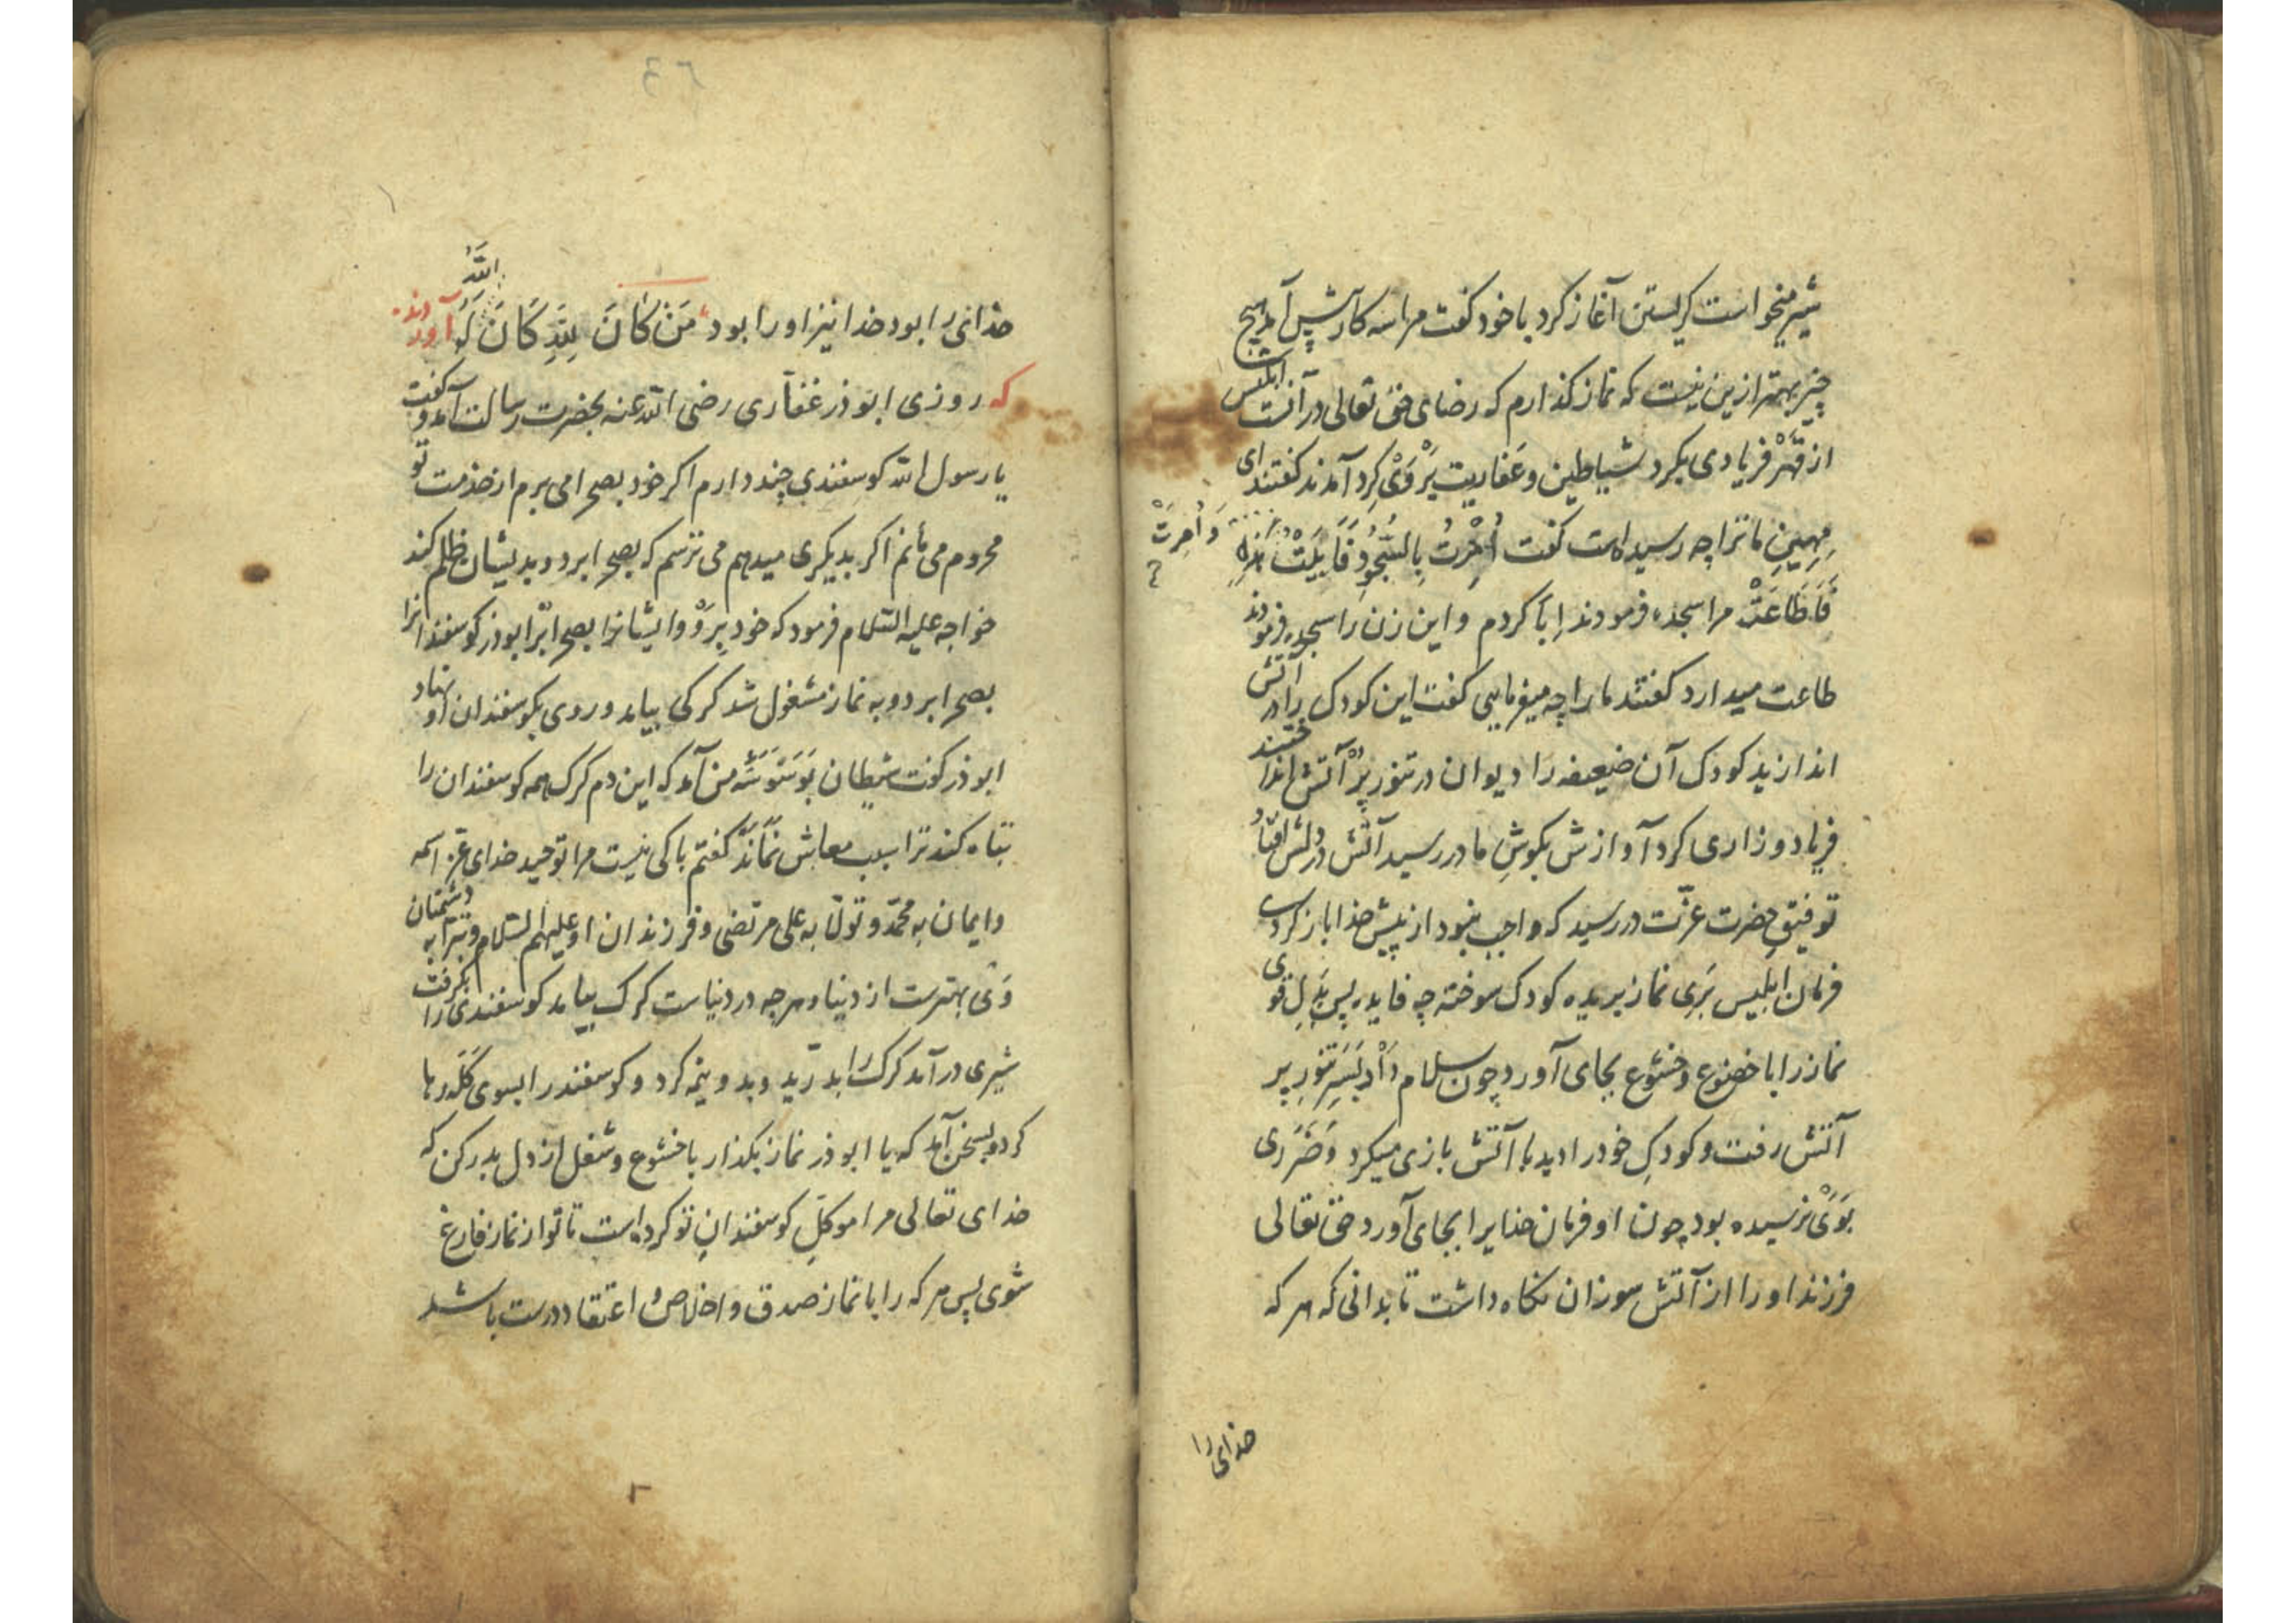 شیر میخواست کریستن آغاز کرد با خود کفت مرا سه کار پیش آمد هیچ
چیز بهتر ازین نیست که نماز کذارم که رضای حق تعالی در آنست ابلیس
از قهر فریادی بکرد شیاطین و عفاریت بر وی کرد آمدند کفتند ای
مهین ما ترا چه رسیده است کفت اُمِرْتُ بِالسُّجُودِ فَاَبَیْتُ وَ اُمِرَتْ هٰذِهِ
فَاَطَاعَتْ مرا سجده فرمودند ابا کردم و این زن را سجده فرمودند
طاعت میدارد کفتند ما را چه میفرمایی کفت این کودک را در آتش
اندازید کودک آن ضعیفه را دیوان در تنور پر آتش انداختند
فریاد و زاری کرد آوازش بکوش مادر رسید آتش در دلش افتاد
توفیق حضرت عزّت در رسید که واجب نبود از پیش خدا باز کردی
فرمان ابلیس بری نماز بریده کودک سوخته چه فایده پس بدل قوی
نماز را با خضوع و خشوع بجای آورد چون سلام داد بسر تنور پر
آتش رفت و کودک خود را دید با آتش بازی میکرد و ضرری
بوی نرسیده بود چون او فرمان خدایرا بجای آورد حق تعالی
فرزند او را از آتش سوزان نکاه داشت تا بدانی که هر که
خدای را
خدائی را بود خدا نیز او را بود مَنْ کَانَ لِلّٰهِ کَانَ اللّٰهُ لَهُ آورده‌اند
که روزی ابوذر غفاری رضی الله عنه بحضرت رسالت آمد و کفت
یا رسول الله کوسفندی چند دارم اکر خود بصحرا می برم از خدمت تو
محروم می مانم اکر بدیکری میدهم می ترسم که بصحرا برد و بدیشان ظلم کند
خواجه علیه السّلام فرمود که خود برو و ایشانرا بصحرا بر ابوذر کوسفندانرا
بصحرا برد و به نماز مشغول شد کرکی بیامد و روی بکوسفندان او نهاد
ابوذر کفت شیطان بوسوسۀ من آمد که این دم کرک همه کوسفندان را
تباه کند ترا سبب معاش نماند کفتم باکی نیست مرا توحید خدای عزّ اسمه
و ایمان به محمّد و تولّا به علی مرتضی و فرزندان او علیهم السّلام و تبرّا به دشمنان
وی بهترست از دنیا و هرچه در دنیاست کرک بیامد کوسفندی را بکرفت
شیری در آمد کرک را بدرّید و بدو نیمه کرد و کوسفند را بسوی کلّه رها
کرد و بسخن آمد که یا ابوذر نماز بکذار با خشوع و شغل از دل بدر کن که
خدای تعالی مرا موکّل کوسفندان تو کرده است تا تو از نماز فارغ
شوی پس هر که را با نماز صدق و اخلاص و اعتقاد درست باشد